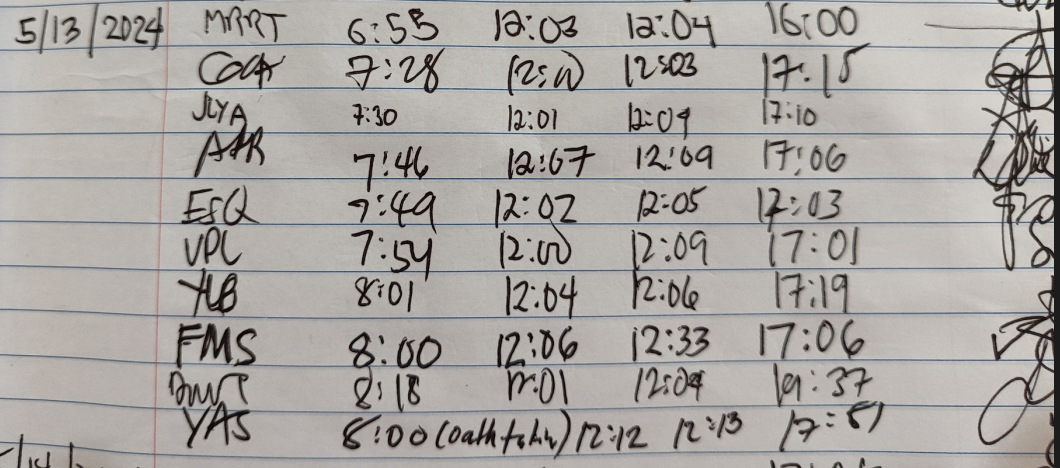 5/13/2024 MRRT 6:55 12:03 12:04 16:00
7:28 12:00 12:03 17:15
JLYA 7:30 12:01 12:09 17:10
7:46 12:07 12:09 17:06
ESQ 7:49 12:02 12:05 17:03
VPL 7:54 12:00 12:09 17:01
YLB 8:01 12:04 12:06 17:19
FMS 8:00 12:06 12:33 17:06
8:18 12:01 12:04 19:37
YAS 8:00 (oath takin) 12:12 12:13 17:51